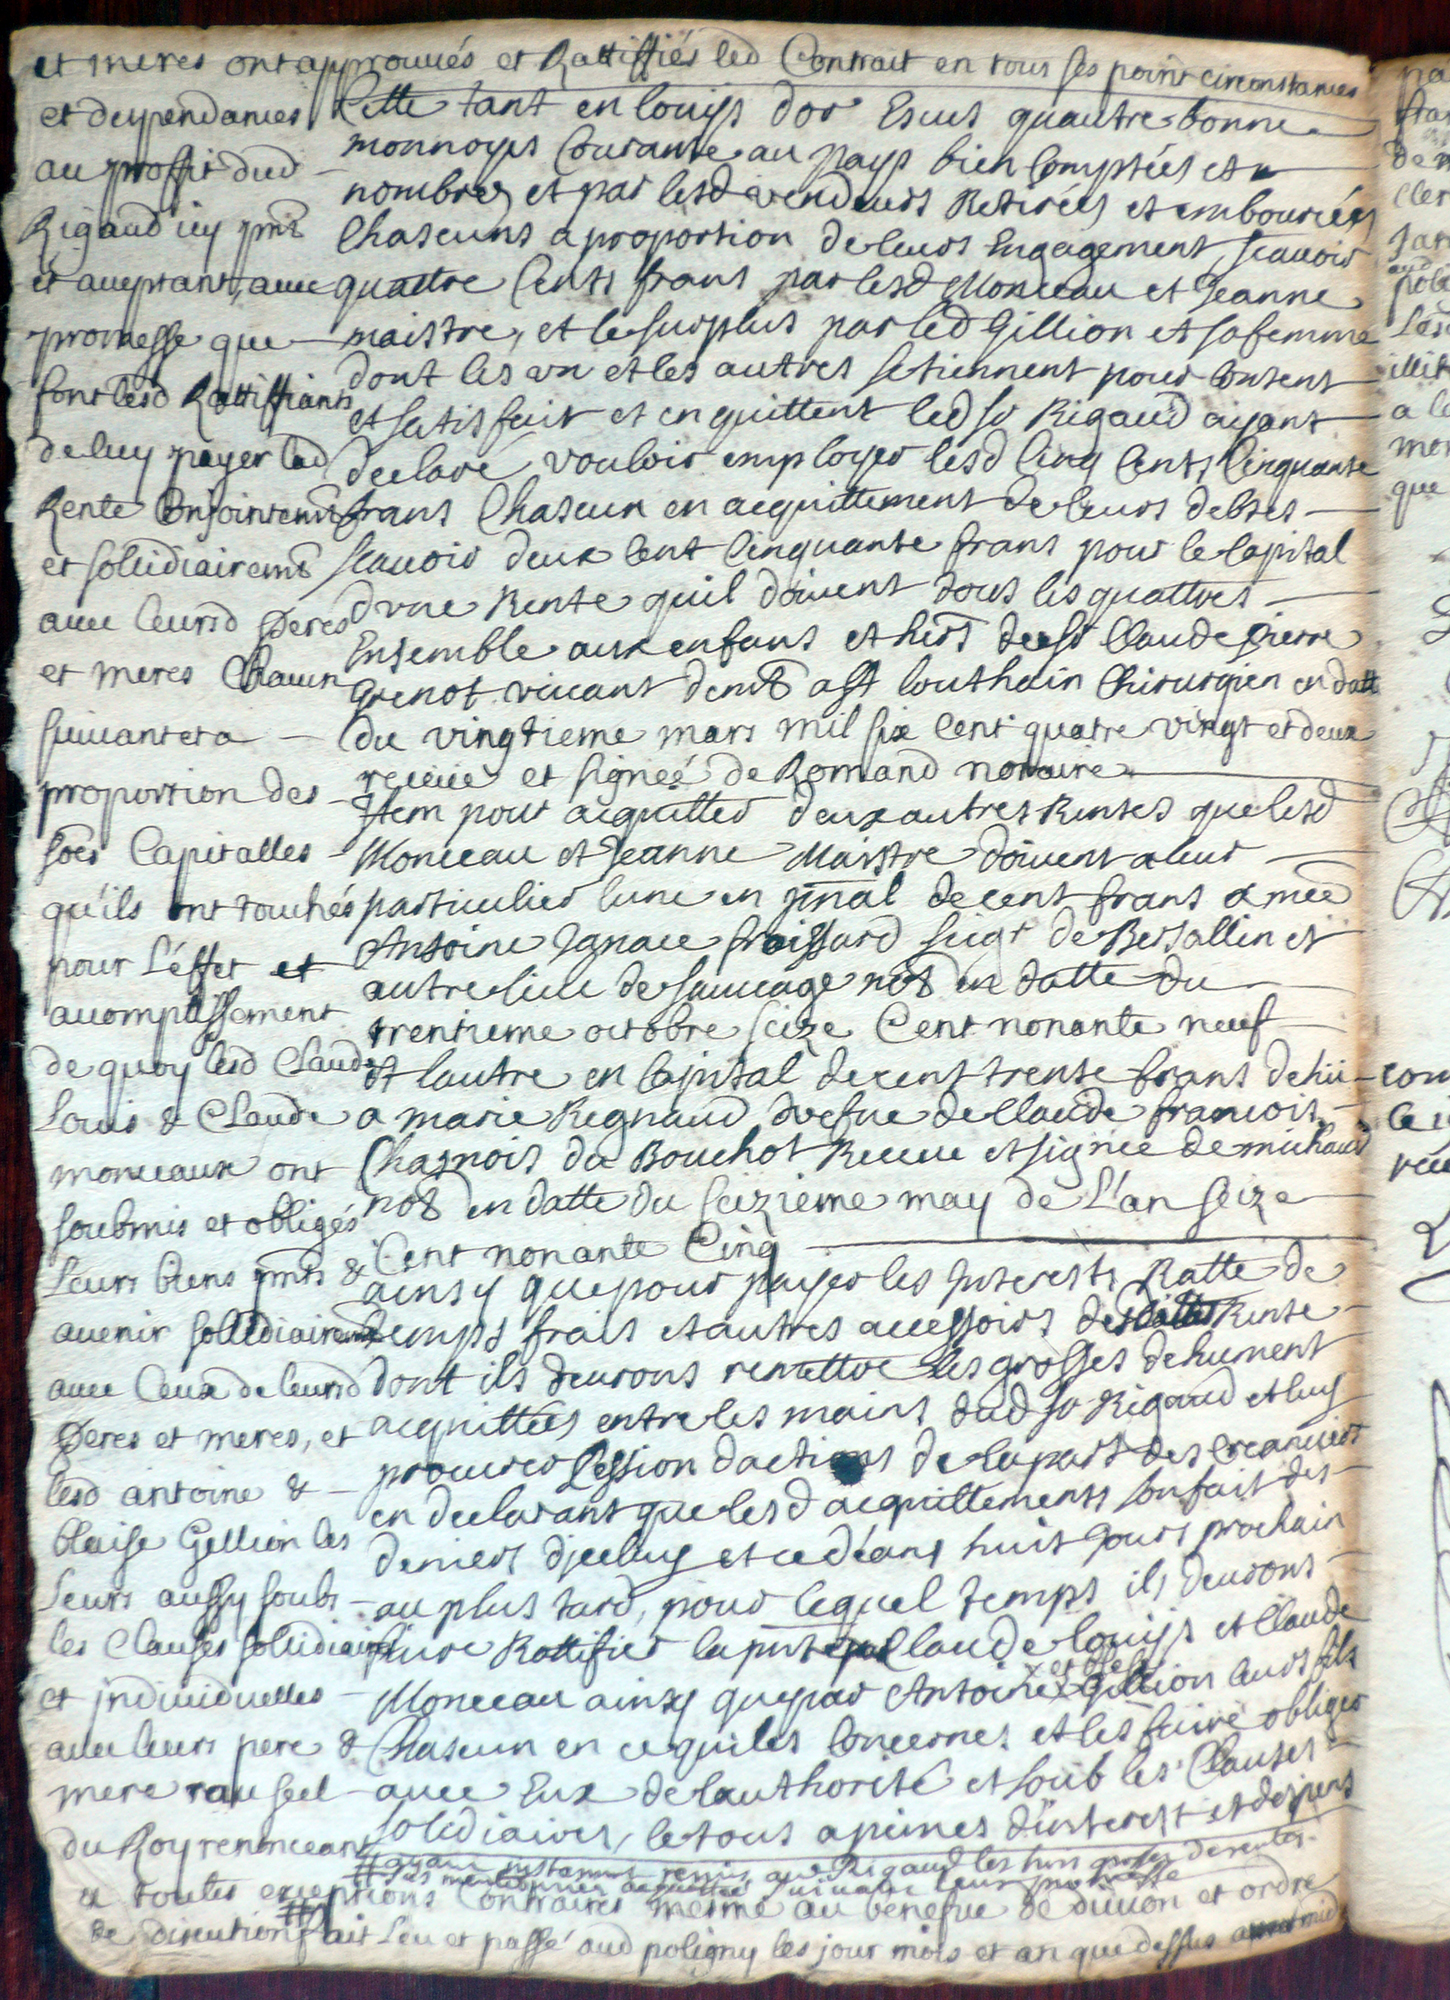 et meres ont approuués et Rattiffiés led Contrait en tous ses point circonstances
et deppendances
au proffit dud
Rigaud icy pnt
et acceptant, auec
promesse que
font lesd Rattiffiants
de luy payer lad
Rente Conjointemt
et sollidiairemt
auec leursd Peres
et meres Chacun
suiuant et a
proportion des
soes Capitalles
qu'ils ont touchés
pour L'éffet et
accomplissement
de quoy lesd Claude
Louis & Claude
monceaux ont
soubmis et obligés
Leurs biens pnts &
auenir sollidiairemt
auec Ceux de leursd
Peres et meres, et
lesd antoine &
blaise Gellion les
Leurs aussy soubs
les Clauses sollidiaires
et jndiuiduelles
auec leurs pere &
mere sau seel
du Roy renonceant
a toutes exceptions Contraires mesme au benefice de diuion et ordre
de discution fait Leu et passé aud poligny les jour mois et an que dessus
Cette tant en louijs dor Escus quautre bonne
monnoyes Courante au pays bien Comptées et
nombrés et par lesd vendeurs Retirées et emboursées
Chascuns a proportion de leurs Engagement, scauoir
quattre Cents frans par lesd Monceau et Jeanne
maistre, et le surplus par led Gillion et sa femme
dont les vn et les autres se tiennent pour Contens
et satisfait et en quittent led sr Rigaud ayant
declaré vouloir employer lesd Cinq Cents Cinquante
frans Chascun en acquittement de leurs debtes
scauoir deux Cent Cinquante frans pour le Capital
dvne Rente quil doiuent tous les quattres
Ensemble aux enfans et hers du sr Claude Pierre
Grenot viuant demt a st louthain Chirurgien en datte
du vingtieme mars mil six Cent quatre vingt et deux
receüe et signeé de Romand notaire
Item pour acquitter deux autres Rentes que lesd
Monceau et Jeanne Maistre doiuent a leur
particulier lune en pnal de cent frans a mre
Antoine Ignace froissard seigr de Bersallin et
autre lieu de sauuage not en datte du
trentieme octobre seize Cent nonante neuf
et lautre en Capital de cent trente frans dehüe
a marie Regnaud vefue de Claude francois
Chagnois du Bouchot Receue et signée de michaud
not en datte du seizieme may de L'an seize
Cent nonante Cinq
ainsy que pour payer les Interests Ratte de
temps frais et autres accessoirs desdittes Rente
dont ils deurons remettre les grosses dehument
acquittées entre les mains dud sr Rigaud et luy
procurer Cession dactions de la part des Creanciers
en declarant que lesd acquittements son fait des
deniers djceluy et ce déans huit Jours prochain
au plus tard, pour lequel temps ils deurons
faire Rattifier la pnte par Claude louijs et Claude
Monceau ainsy que par Antoine Gillion leurs fils
Chascun en ce qui les Concernes et les faire obliger
auec Eux de lauthorité et soub les Clauses
solidiaires, le tous a peines d'interest et despens